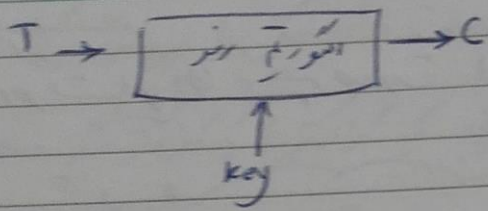 T → الگوریتم رمز → C
key